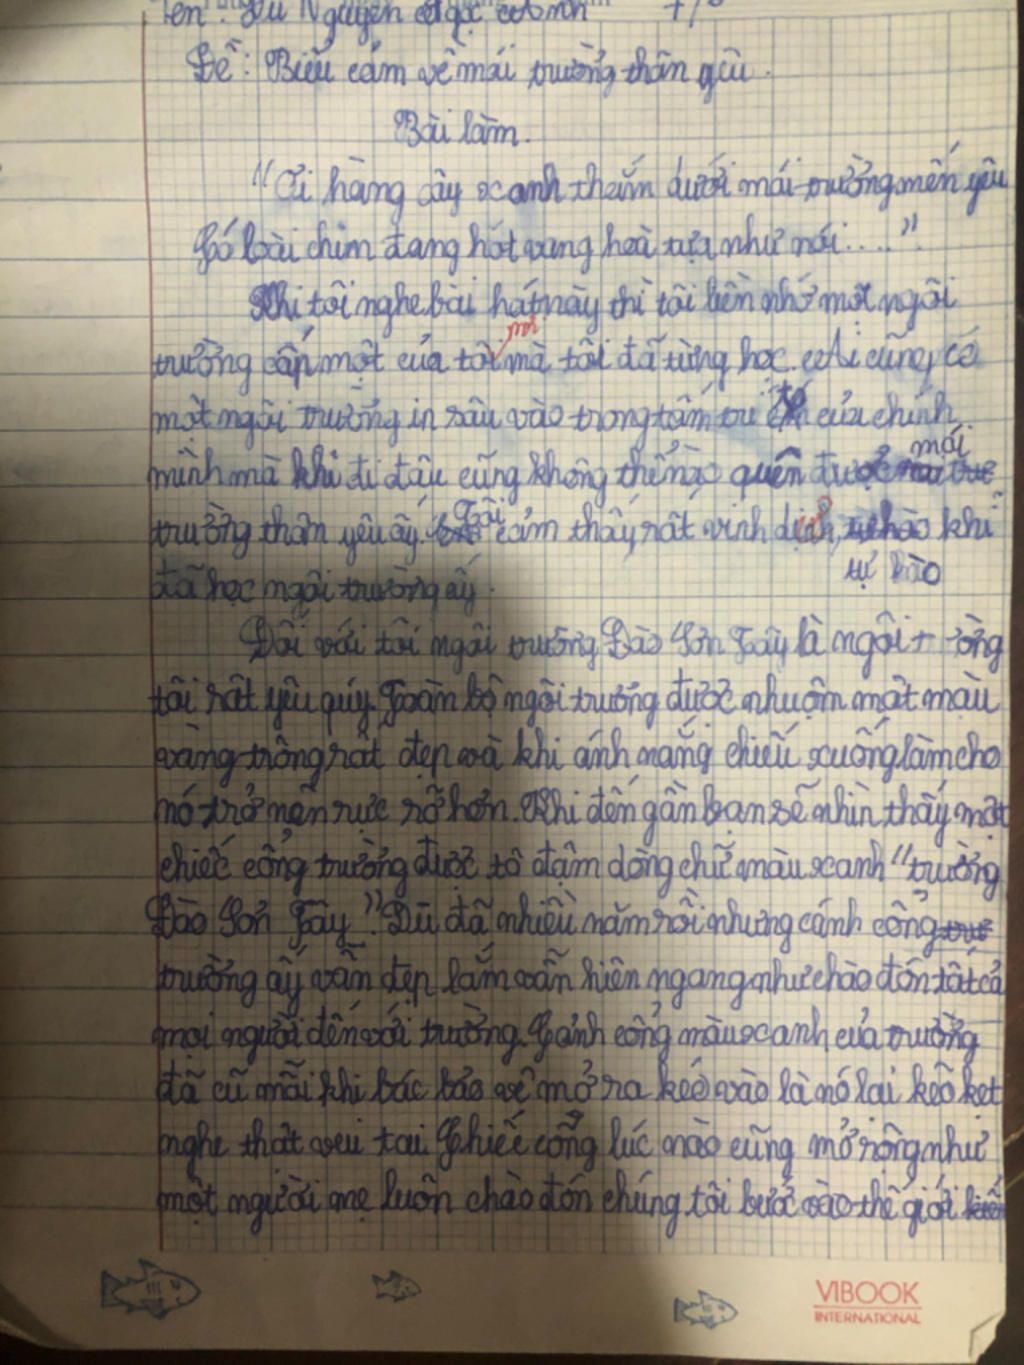 Tên: Nguyễn Ngọc 7/
Đề: Biểu cảm về mái trường thân yêu.
Bài làm.
"Ơi hàng cây xanh thắm dưới mái trường mến yêu
Có loài chim đang hót vang hoà tựa như nói...."
Khi tôi nghe bài hát này thì tôi liền nhớ một ngôi
trường cấp một của tôi mà tôi đã từng học. Ai cũng có
một ngôi trường in sâu vào trong tâm trí của chính
mình mà khi đi đâu cũng không thể nào quên được mái
trường thân yêu ấy. Tôi cảm thấy rất vinh dự, tự hào khi
đã học ngôi trường ấy.
Đối với tôi ngôi trường Đào Sơn Tây là ngôi t ờng
tôi rất yêu quý. Toàm bộ ngôi trường được nhuộm một màu
vàng trông rất đẹp và khi ánh nắng chiếu xuống làm cho
nó trở nên rực rỡ hơn. Khi đến gần bạn sẽ nhìn thấy một
chiếc cổng trường được tô đậm dòng chữ màu xanh "trường
Đào Sơn Tây". Dù đã nhiều năm rồi nhưng cánh cổng
trường ấy vẫn đẹp lắm vẫn hiên ngang như chào đón tất cả
mọi người đến với trường. Cánh cổng màu xanh của trường
đã cũ mỗi khi bác bảo vệ mở ra kéo vào là nó lại kẽo kẹt
nghe thật vui tai. Chiếc cổng lúc nào cũng mở rộng như
một người mẹ luôn chào đón chúng tôi bước vào thế giới
VIBOOK
INTERNATIONAL